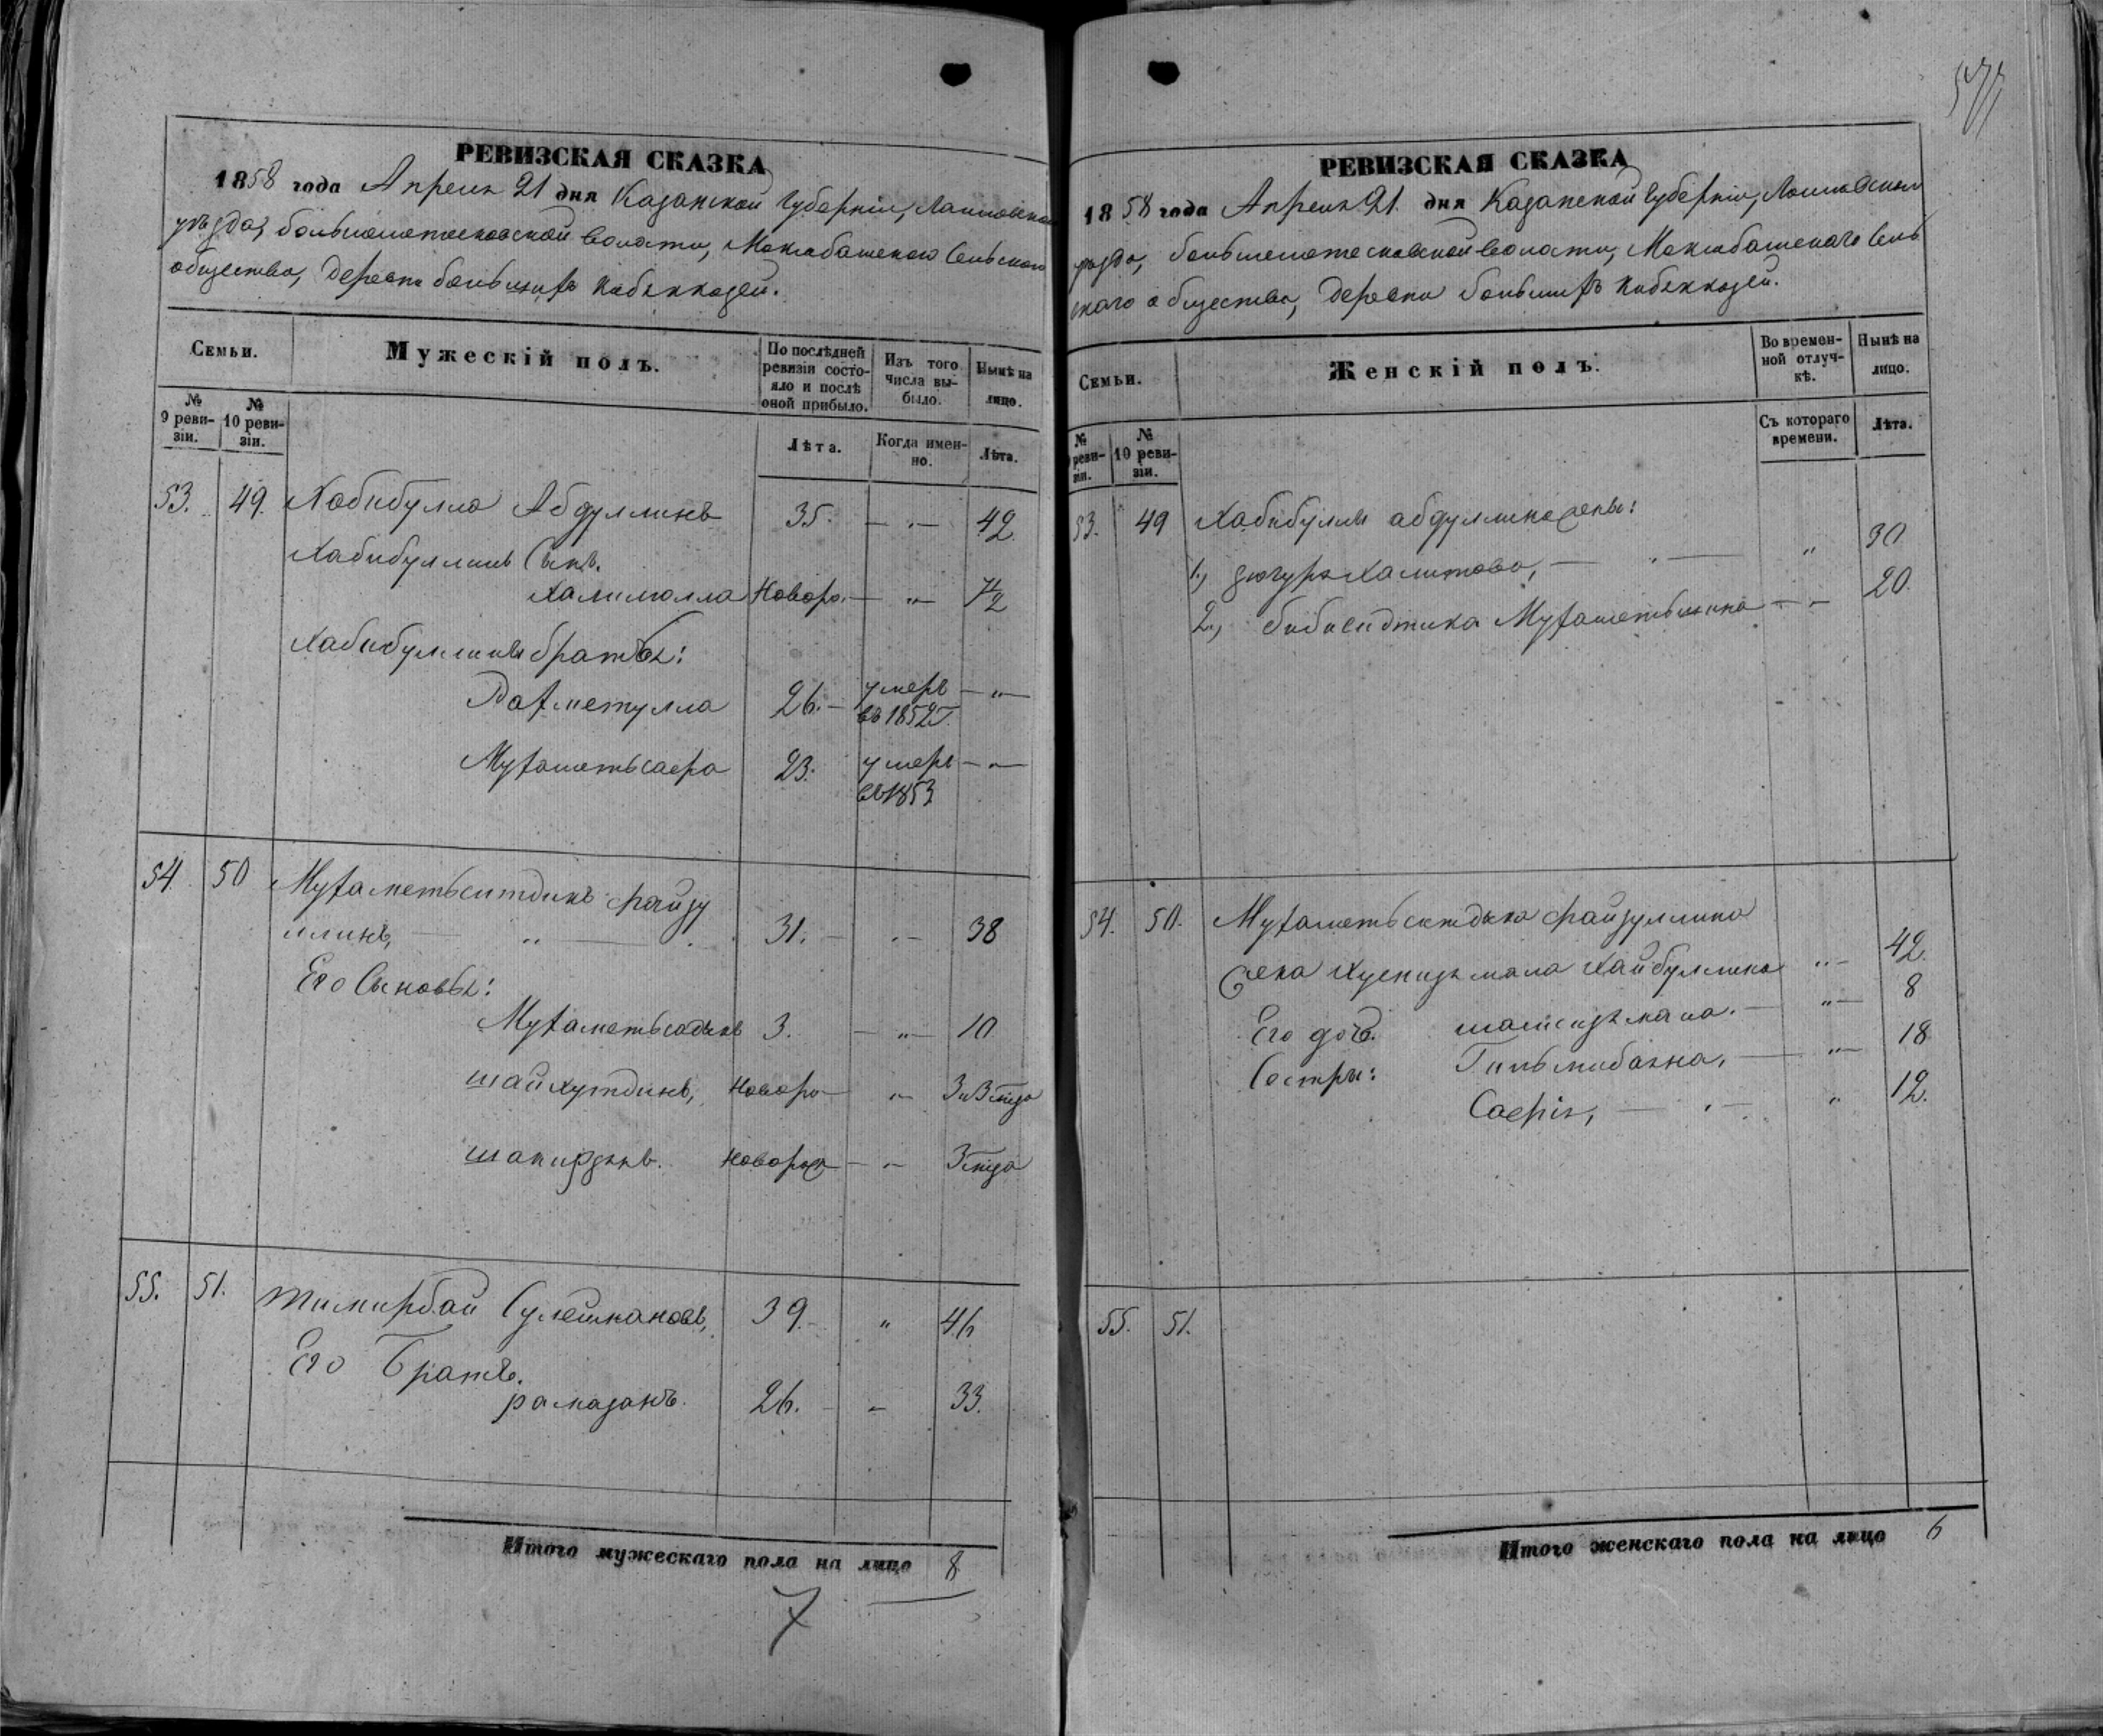 РЕВИЗСКАЯ СКАЗКА
1858 года Апреля 21 дня Казанской Губернiи, Лаишевскаго
уѣзда, большеметесковской волости, Сельскаго
общества, Деревни большихъ Кибяккозей.
Семьи.
Мужескій полъ.
По послѣдней ревизіи состояло и послѣ оной прибыло.
Изъ того числа выбыло.
Нынѣ на лицо.
№ 9 ревизіи.
№ 10 ревизіи.
Лѣта.
Когда именно.
Лѣта.
53. 49. Хабибулла Абдуллинъ 35. — „ — 42.
Хабибуллинъ Сынъ.
Халиолла Новоро. — „ — 1/2
Хабибуллины братья:
Рахметулла 26. — умеръ — „ —
въ 1852 г.
Мухаметьсафа 23. умеръ — „ —
въ 1853
54. 50 Мухаметьситдикъ файзу
ллинъ, — „ — 31. — „ — 38
Его Сыновья:
Мухаметьсадыкъ 3. — „ — 10
шайхутдинъ, Новоро — „ — 3
Новорож — „ — 3
55. 51. тимирбай Сулеймановъ, 39. — „ 46
Его Братъ.
рамазанъ. 26. — „ 33.
Итого мужескаго пола на лицо 8.
7
577
РЕВИЗСКАЯ СКАЗКА
1858 года Апреля 21. дня Казанской Губернiи, Лаишевскаго
уѣзда, большеметесковской волости, Сель
скаго общества, Деревни большихъ Кибяккозей.
Семьи.
Женскій полъ.
Во временной отлучкѣ.
Нынѣ на лицо.
№ ревизіи.
№ 10 ревизіи.
Съ котораго времени.
Лѣта.
53. 49 Хабибуллы абдуллина жены:
1., Халитова, — „ — „ 30
2., бибисидтика Мухаметьшина — „ — 20.
54. 50. Мухаметьситдика файзуллина
Жена Хуснизямала Хайбуллина „ — 42.
Его дочь. — „ — 8
Сестры: Гильмибаяна, — „ — 18
Сафiя, — „ — „ 12.
55. 51.
Итого женскаго пола на лицо 6